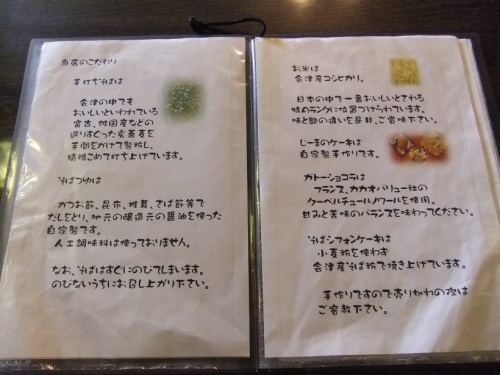 当店のこだわり
手打ちそばは
会津の中でも
おいしいといわれている
宮古、雄国産などの
選りすぐった玄蕎麦を
手間をかけて製粉し、
精根こめて打ち上げています。
そばつゆは
かつお節、昆布、椎茸、さば節等で
だしをとり、地元の醸造元の醤油を使った
自家製です。
人工調味料は使っておりません。
なお、そばはすぐにのびてしまいます。
のびないうちにお召し上がり下さい。
お米は
会津産コシヒカリ。
日本の中で一番おいしいとされる
特Aランクに位置づけられています。
味と艶の違いを是非、ご賞味下さい。
じーまのケーキは
自家製手作りです。
ガトーショコラは
フランス、カカオバリュー社の
クーベルチュールノワールを使用。
甘みと苦味のバランスを味わってください。
そばシフォンケーキは
小麦粉を使わず
会津産そば粉で焼き上げています。
手作りですので売り切れの際は
ご容赦下さい。